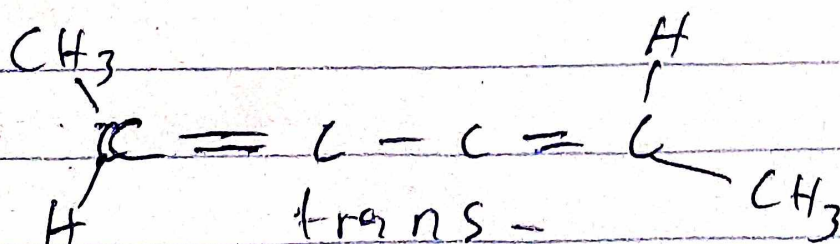 CH3 H
C = C - C = C
H trans - CH3